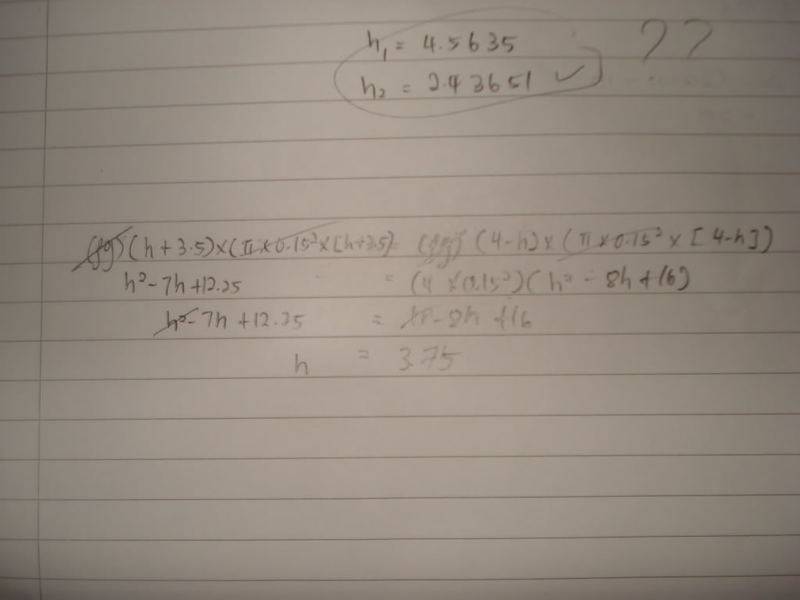 h₁ = 4.5635 ??
h₂ = 2.43651 ✓
(h + 3.5) × (π × 0.15² × [h+3.5) = (4-h) × (π × 0.15² × [4-h])
h² - 7h + 12.25 = (h² - 8h + 16)
h² - 7h + 12.25 = - 8h + 16
h = 3.75